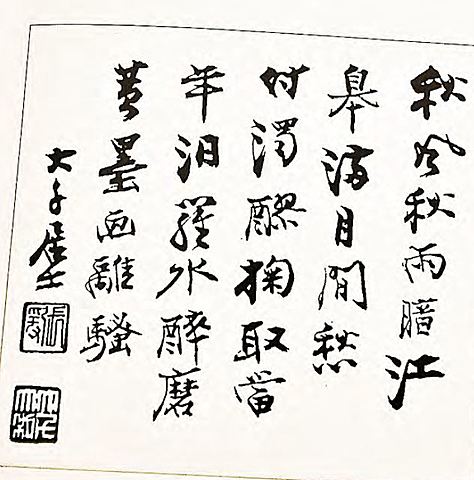 秋風秋雨暗江
皋滿目閒愁
付濁醪掬取當
年汨羅水醉磨
墨画離騷
大千居士
張爰